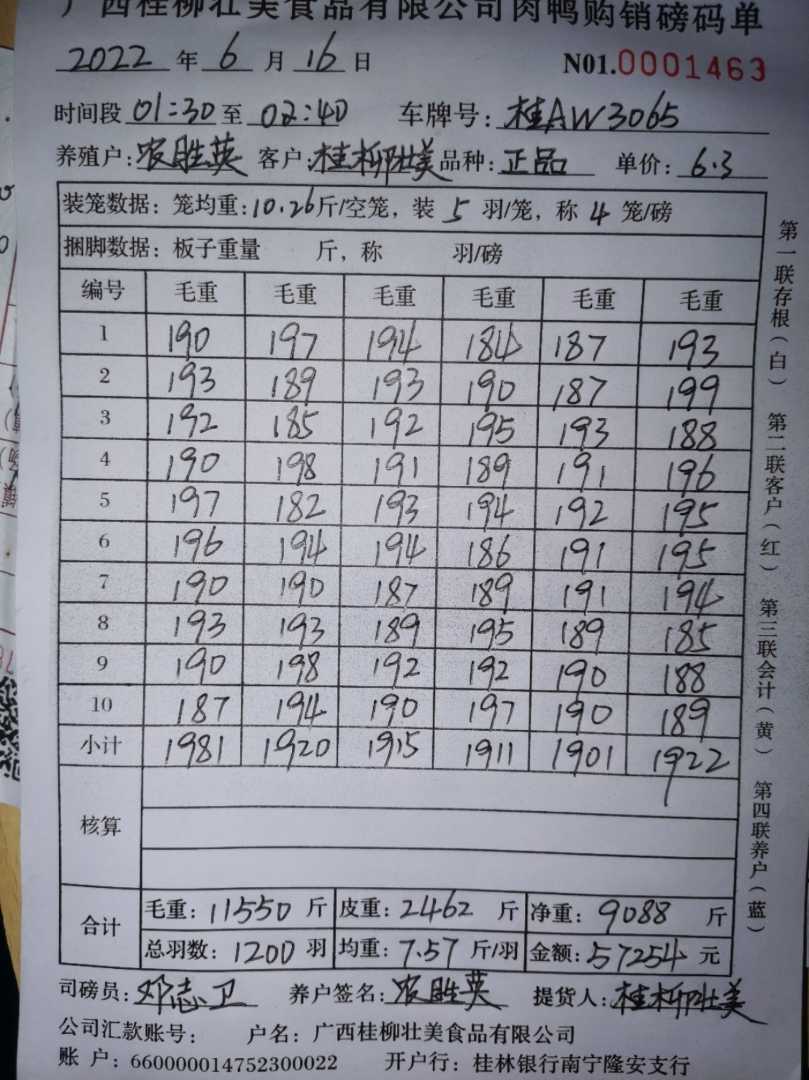 广西桂柳壮美食品有限公司肉鸭购销磅码单
2022 年 6 月 16 日 N01.0001463
时间段 01:30 至 02:40 车牌号: 桂AW3065
养殖户: 农胜英 客户: 桂柳壮美 品种: 正品 单价: 6.3
装笼数据: 笼均重: 10.26 斤/空笼, 装 5 羽/笼, 称 4 笼/磅
捆脚数据: 板子重量 斤, 称 羽/磅
编号 毛重 毛重 毛重 毛重 毛重 毛重
1 190 197 194 184 187 193
2 193 189 193 190 187 199
3 192 185 192 195 193 188
4 190 198 191 189 191 196
5 197 182 193 194 192 195
6 196 194 194 186 191 195
7 190 190 187 189 191 194
8 193 193 189 195 189 185
9 190 198 192 192 190 188
10 187 194 190 197 190 189
小计 1981 1920 1915 1911 1901 1922
核算
合计 毛重: 11550 斤 皮重: 2462 斤 净重: 9088 斤
总羽数: 1200 羽 均重: 7.57 斤/羽 金额: 57254 元
司磅员: 邓志卫 养户签名: 农胜英 提货人: 桂柳壮美
公司汇款账号: 户名: 广西桂柳壮美食品有限公司
账 户: 660000014752300022 开户行: 桂林银行南宁隆安支行
第一联存根(白)
第二联客户(红)
第三联会计(黄)
第四联养户(蓝)